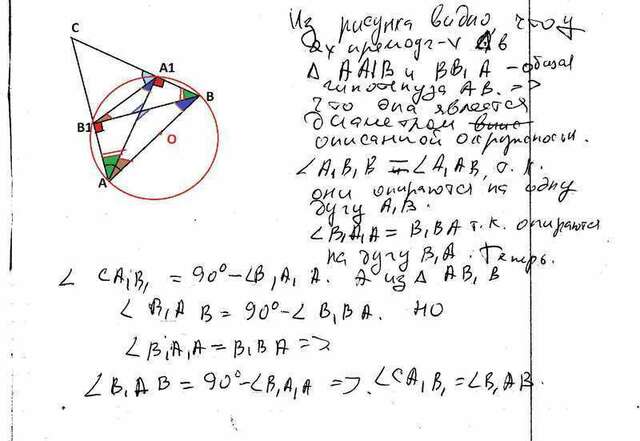 C
A1
B
B1
O
A
Из рисунка видно что у
2х прямоуг-х
Δ AA1B и BB1A - общая
гипотенуза AB. =>
что она является
диаметром
описанной окружности.
∠A1B1B = ∠A1AB, т.к.
они опираются на одну
дугу A1B.
∠B1A1A = B1BA т.к. опираются
на дугу B1A. Теперь.
∠ CA1B1 = 90° - ∠B1A1A. А из Δ AB1B
∠ B1AB = 90° - ∠ B1BA. НО
∠B1A1A = B1BA =>
∠B1AB = 90° - ∠B1A1A =>. ∠CA1B1 = ∠B1AB.